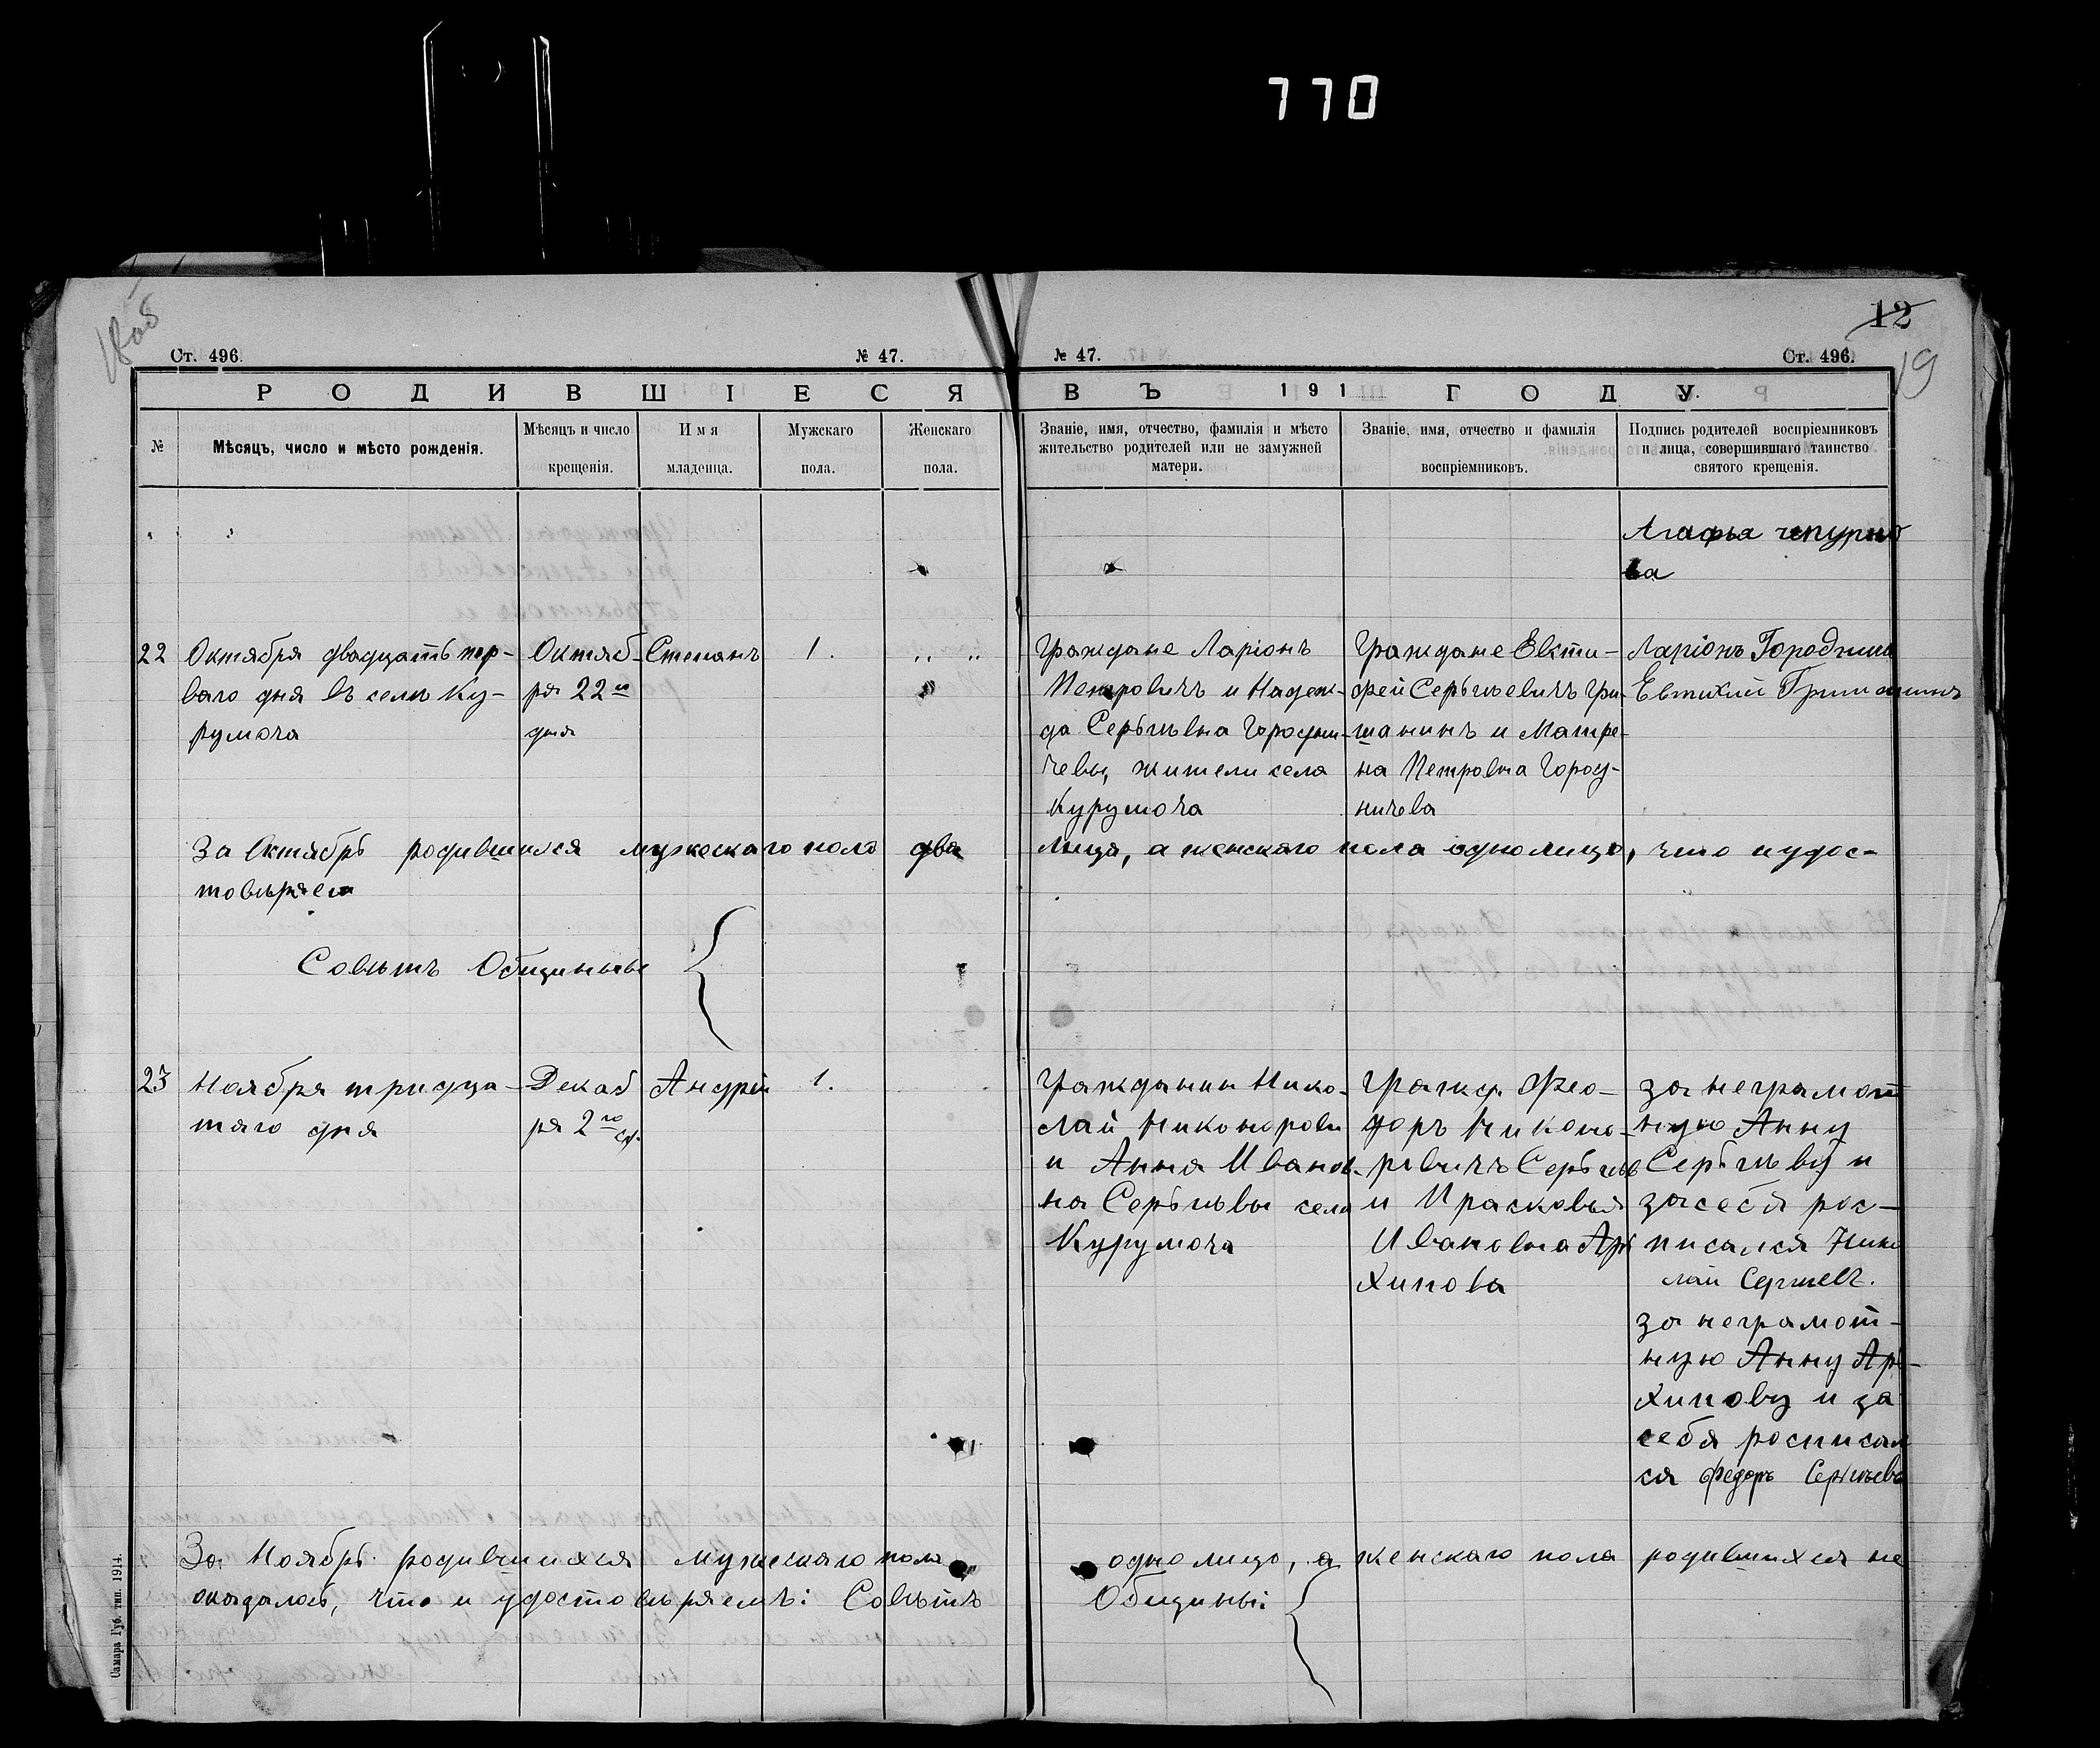 770
12
19
Ст. 496.
№ 47.
№ 47.
Ст. 496.
РОДИВШІЕСЯ ВЪ 191 ГОДУ.
№
Мѣсяцъ, число и мѣсто рожденія.
Мѣсяцъ и число крещенія.
Имя младенца.
Мужскаго пола.
Женскаго пола.
Званіе, имя, отчество, фамилія и мѣсто
жительство родителей или не замужней
матери.
Званіе, имя, отчество и фамилія
воспріемниковъ.
Подпись родителей воспріемниковъ
и лица, совершившаго таинство
святого крещенія.
Агафья чепурно
ва
22
Октября двадцать пер-
ваго дня въ селѣ Ку-
румоча
Октяб-
ря 22го
дня
Степанъ
1.
Граждане Ларіонъ
Петровичъ и Надеж-
да Сергѣевна Городни-
чевы, жители села
Курумоча
Граждане Евти-
фей Сергѣевичъ Гри-
шанинъ и Матре-
на Петровна Город-
ничева
Ларіонъ
Евтихий Гришанинъ
За Октябрь родившихся мужескаго пола два лица, а женскаго пола одно лицо, что и удос-
товѣряем
Совѣтъ Общины
23
Ноября тридца-
таго дня
Декаб
ря 2го дн.
Андрей
1.
Гражданин Нико-
лай Никонорови
и Анна Иванов-
на Сергѣевы села
Курумоча
Гражд. Фео-
доръ Никоно-
ровичъ Сергѣев
и Прасковья
Ивановна Ар
хипова
за неграмот
ную Анну
Сергѣеву и
за себя рос-
писался Нико
лай Сергѣевъ.
за неграмот-
ную Анну Ар-
хипову и за
себя росписал
ся Федоръ Сергѣевъ
За Ноябрь родившихся мужескаго пола одно лицо, а женскаго пола родившихся не
оказалось, что и удостовѣряемъ: Совѣтъ Общины:
Самара Губ. тип. 1914.